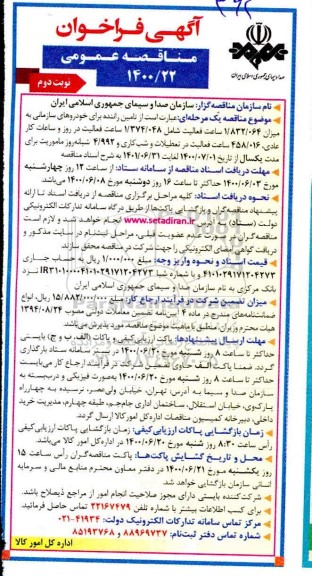 آگهی فراخوان
مناقصه عمومی
۱۴۰۰/۲۲
نوبت دوم
صدا و سیمای جمهوری اسلامی ایران
نام سازمان مناقصه‌گزار: سازمان صدا و سیمای جمهوری اسلامی ایران
موضوع مناقصه یک مرحله‌ای: عبارت است از تامین راننده برای خودروهای سازمانی به
میزان ۱/۸۳۲/۰۶۴ ساعت فعالیت شامل ۱/۳۷۴/۰۴۸ ساعت فعالیت در روز و ساعات کار
عادی، ۴۵۸/۰۱۶ ساعت فعالیت در تعطیلات و شب‌کاری و ۴/۹۹۲ شبانه‌روز ماموریت برای
مدت یکسال از تاریخ ۱۴۰۰/۰۷/۰۱ لغایت ۱۴۰۱/۰۶/۳۱ به شرح اسناد مناقصه
مهلت دریافت اسناد مناقصه از سامانه ستاد: از ساعت ۱۲ روز چهارشنبه
مورخ ۱۴۰۰/۰۶/۰۳ حداکثر تا ساعت ۱۶ روز دوشنبه مورخ ۱۴۰۰/۰۶/۰۸ می‌باشد
نحوه دریافت اسناد: کلیه مراحل برگزاری مناقصه از دریافت اسناد تا ارائه
پیشنهاد مناقصه‌گران و بازگشایی پاکت‌ها از طریق درگاه سامانه تدارکات الکترونیکی
دولت (ستاد) به آدرس www.setadiran.ir انجام خواهد شد و لازم است
مناقصه‌گران در صورت عدم عضویت قبلی، مراحل ثبت‌نام در سایت مذکور و
دریافت گواهی امضای الکترونیکی را جهت شرکت در مناقصه محقق سازند
قیمت اسناد و نحوه واریز وجه: مبلغ ۱/۰۰۰/۰۰۰ ریال به حساب جاری
۴۱۰۱۰۲۹۱۷۱۲۰۴۲۷۳ و یا شماره شبا IR۳۱۰۱۰۰۰۰۴۱۰۱۰۲۹۱۷۱۲۰۴۲۷۳ نزد
بانک مرکزی به نام سازمان صدا و سیمای جمهوری اسلامی ایران
میزان تضمین شرکت در فرآیند ارجاع کار: مبلغ ۱۵/۸۸۲/۰۰۰/۰۰۰ ریال، انواع
ضمانتنامه‌های مندرج در ماده ۴ آیین‌نامه تضمین معاملات دولتی مصوب ۱۳۹۴/۰۸/۲۴
هیات محترم وزیران منطبق با ماهیت موضوع مناقصه، مورد پذیرش می‌باشد
مهلت ارسال پیشنهادها: پاکت ارزیابی کیفی و پاکات (الف، ب و ج) بایستی
حداکثر تا ساعت ۸ روز شنبه مورخ ۱۴۰۰/۰۶/۲۰ در سامانه ستاد بارگذاری
گردد. ضمنا پاکت الف حاوی تضمین شرکت در فرآیند ارجاع کار می‌بایست
حداکثر تا ساعت ۸ روز شنبه مورخ ۱۴۰۰/۰۶/۲۰ به‌صورت فیزیکی و دربسته به
سازمان صدا و سیما به آدرس: تهران، خیابان ولی‌عصر، نرسیده به چهارراه
پارک‌وی، خیابان استقلال، ساختمان اداری جام‌جم، طبقه چهارم، مدیریت خرید
داخلی، دبیرخانه کمیسیون مناقصات اداره‌کل امور کالا ارسال گردد.
زمان بازگشایی پاکات ارزیابی کیفی: زمان بازگشایی پاکات ارزیابی کیفی
رأس ساعت ۸:۳۰ روز شنبه مورخ ۱۴۰۰/۰۶/۲۰ در اداره‌کل امور کالا می‌باشد.
محل و تاریخ گشایش پاکت‌ها: پاکت مناقصه‌گران رأس ساعت ۱۵
روز یکشنبه مورخ ۱۴۰۰/۰۶/۲۱ در دفتر معاون محترم منابع مالی و سرمایه
انسانی سازمان بازگشایی خواهد شد.
شرکت‌کننده بایستی دارای مجوز صلاحیت انجام امور از مراجع ذیصلاح باشد.
برای کسب اطلاعات بیشتر با شماره تلفن ۲۲۱۶۷۴۷۹ تماس حاصل فرمائید.
مرکز تماس سامانه تدارکات الکترونیک دولت: ۴۱۹۳۴-۰۲۱
شماره تماس دفتر ثبت‌نام: ۸۸۹۶۹۷۳۷ و ۸۵۱۹۳۷۶۸
اداره کل امور کالا